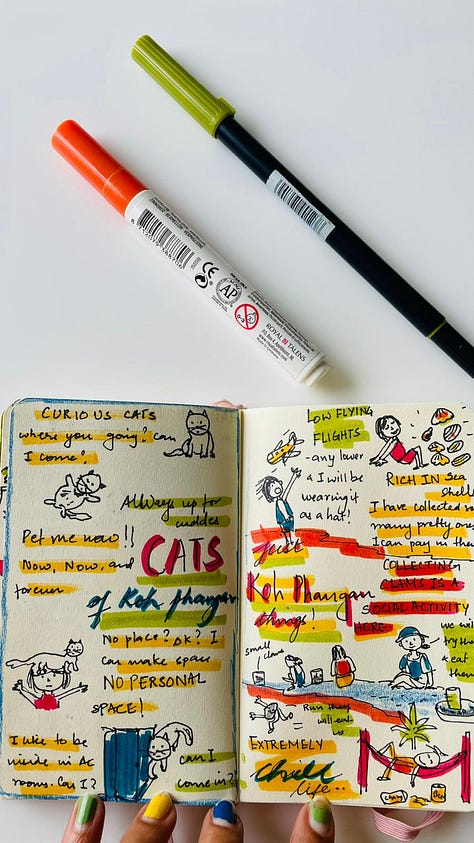 CE
AP
0-3
ROYAL TALENS
P.O. Box 4, Apeldoorn, NL
CURIOUS CATS
where you going? Can
I come?
Always up for
cuddles
Pet me now!!
Now, Now, and
forever
CATS
of Koh phangan
No place? OK? I
can make space
NO PERSONAL
SPACE!
I like to be
inside in AC
rooms. Can I?
Can I
come in?
LOW FLYING
FLIGHTS
- any lower
& I will be
wearing it
as a hat!
RICH IN Sea
Shells
I have collected so
many pretty ones
I can pay in them
Just
Koh Phangan
things!
COLLECTING
CLAMS IS A
SOCIAL ACTIVITY
HERE
we will
try them
& eat
them
small clams
Run they
will eat
us
EXTREMELY
Chilled
life..